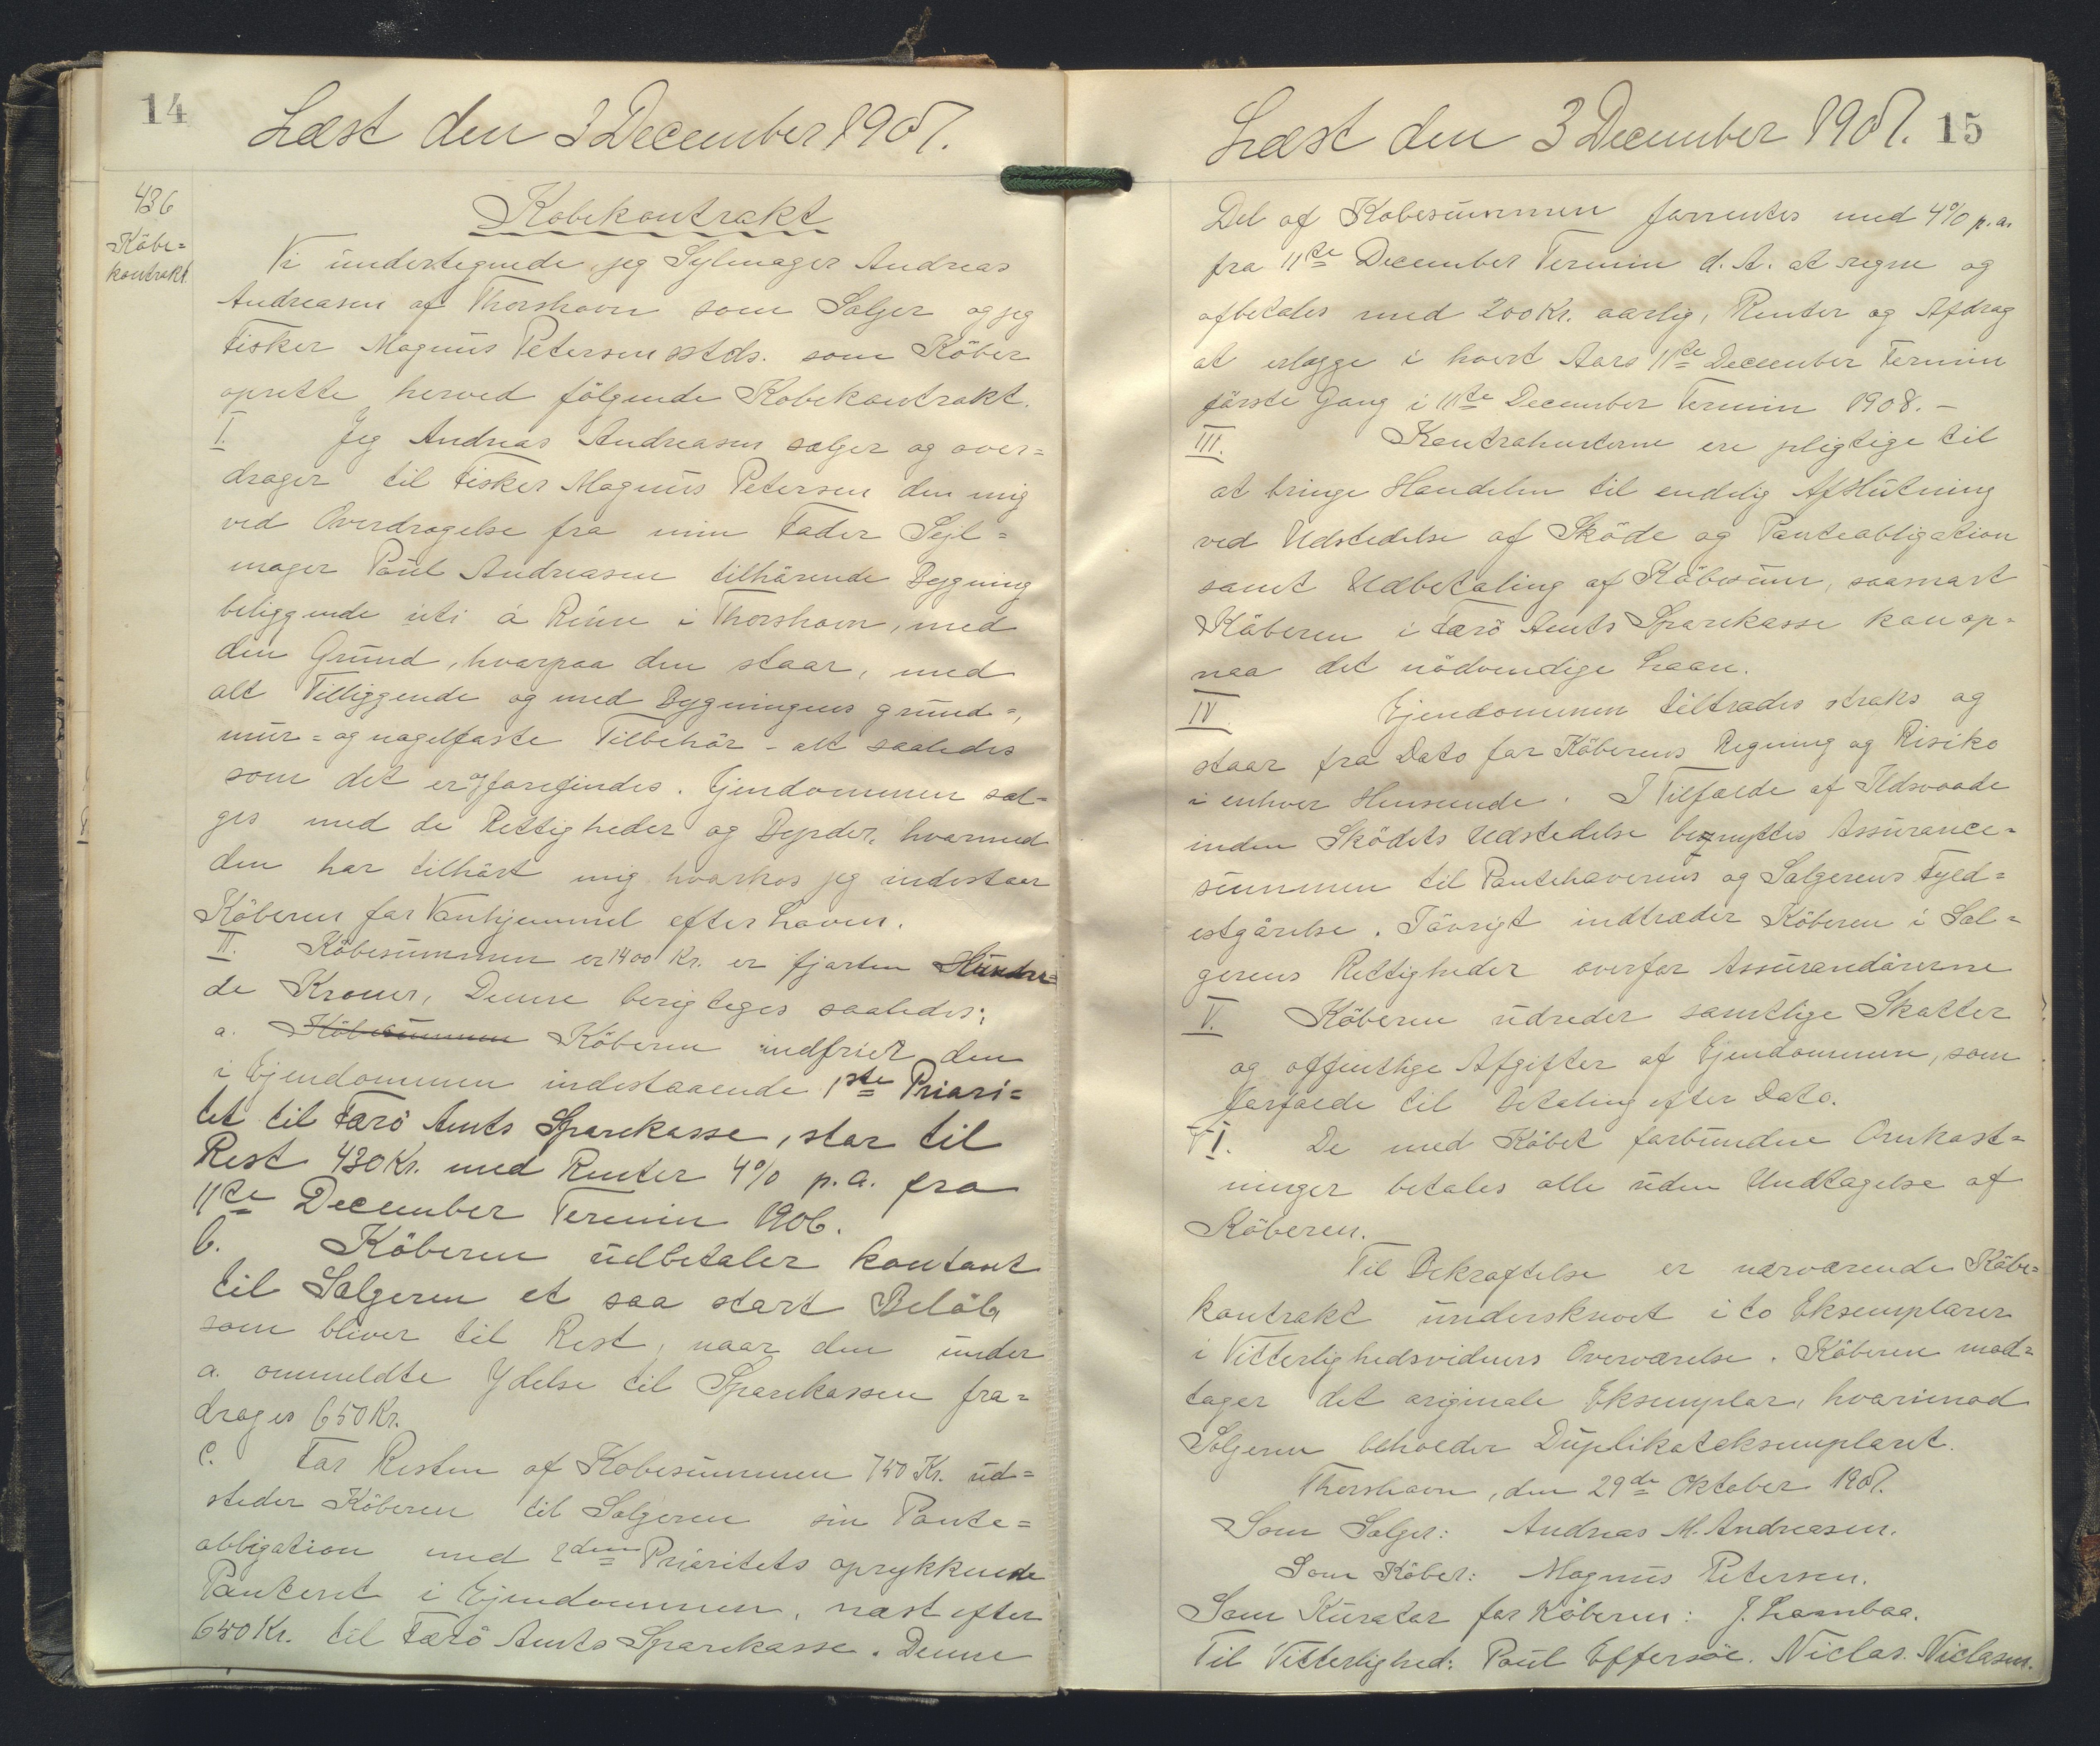 14
Læst den 3 December 1907.
436
Köbe=
kontrakt
Köbekontrakt
Vi undertegnede, jeg Sejlmager Andreas
Andreasen af Thorshavn som Sælger og jeg
Fisker Magnus Petersen sstds. som Köber
oprette herved fölgende Købekontrakt.
I. Jeg Andreas Andreasen sælger og over=
drager til Fisker Magnus Petersen den mig
ved Overdragelse fra min Fader Sejl=
mager Poul Andreasen tilhörende Bygning
beliggende uti á Reine i Thorshavn, med
den Grund, hvorpaa den staar, med
alt Tilliggende og med Bygningens grund=,
mur= og nagelfaste Tilbehör - alt saaledes
som det er og forefindes. Ejendommen sæl=
ges med de Rettigheder og Byrder, hvormed
den har tilhört mig, hvorhos jeg indestaar
Köberen for Vanhjemmel efter Loven.
II. Köbesummen er 1400 Kr. er fjorten Hundre=
de Kroner, Denne berigtiges saaledes:
a. Köbesummen Köberen indfrier den
i Ejendommen indestaaende 1ste Priori=
tet til Færö Amts Sparekasse, stor til
Rest 430 Kr. med Renter 4% p.a. fra
11te December Termin 1906.
b. Köberen udbetaler kontant
til Sælgeren et saa stort Belöb,
som bliver til Rest, naar den under
a. ommeldte Ydelse til Sparekassen fra=
drages 650 Kr.
c. For Resten af Köbesummen 750 Kr. ud=
steder Köberen til Sælgeren sin Pante=
obligation med 2den Prioritets oprykkende
Panteret i Ejendommen, næst efter
650 Kr. til Færö Amts Sparekasse. Denne
Læst den 3 December 1907. 15
Del af Købesummen forrentes med 4% p.a.
fra 11te December Termin d. A. at regne og
afbetales med 200 Kr. aarlig, Renter og Afdrag
at erlægge i hvert Aars 11te December Termin
förste Gang i 11te December Termin 1908. -
III. Kontrahenterne ere pligtige til
at bringe Handelen til endelig Afslutning
ved Udstedelse af Sköde og Panteobligation
samt Udbetaling af Köbesum, saasnart
Köberen i Færö Amts Sparekasse kan op=
naa det nödvendige Laan.
IV. Ejendommen tiltrædes straks og
staar fra Dato for Köberens Regning og Risiko
i enhver Henseende. I Tilfælde af Ildsvaade
inden Sködets Udstedelse benyttes Assurance=
summen til Pantehaverens og Sælgerens Fyld=
estgörelse. Iövrigt indtræder Köberen i Sæl=
gerens Rettigheder overfor Assurandörerne
V. Köberen udreder samtlige Skatter
og offentlige Afgifter af Ejendommen, som
forfalde til Betaling efter Dato.
VI. De med Köbet forbundne Omkost=
ninger betales alle uden Undtagelse af
Köberen.
Til Bekræftelse er nærværende Köbe=
kontrakt underskrevet i to Eksemplarer
i Vitterlighedsvidners Overværelse. Köberen mod=
tager det originale Eksemplar, hvorimod
Sælgeren beholder Duplikateksemplaret.
Thorshavn, den 29de Oktober 1907.
Som Sælger: Andreas M. Andreasen.
Som Köber: Magnus Petersen.
Som Kurator for Köberen: J. Lamhaa.
Til Vitterlighed: Poul Effersöe. Niclas Niclasen.